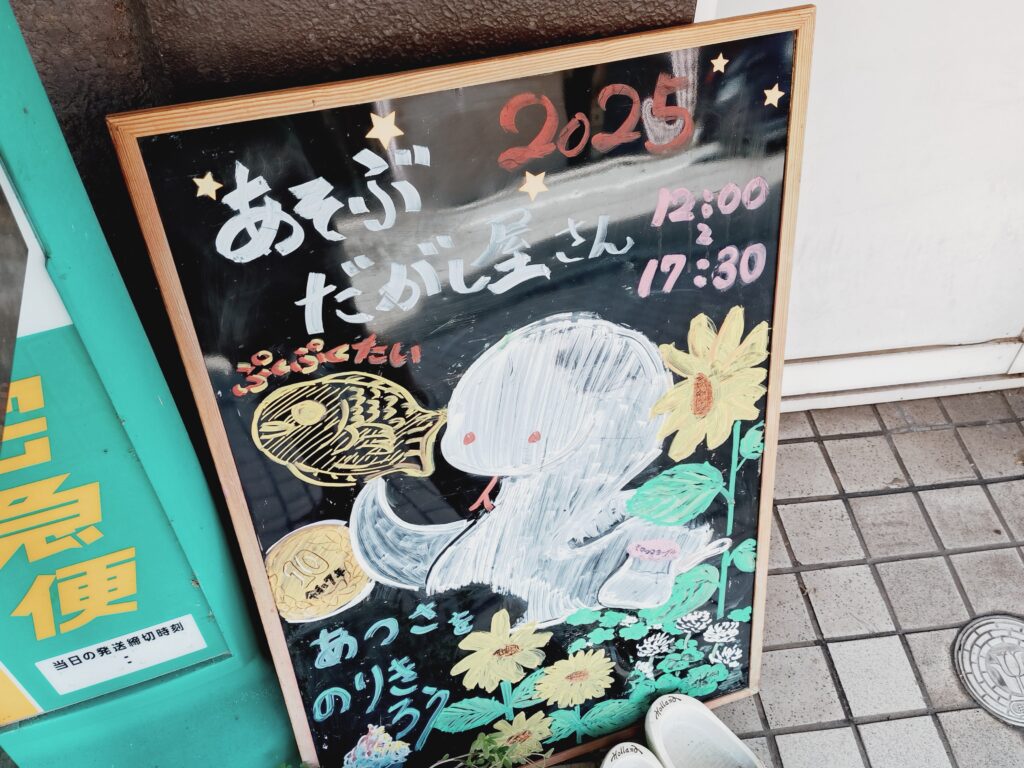 2025
あそぶ
だがし屋さん
12:00
～
17:30
ぷくぷくたい
10
令和7年
あつさを
のりきろう
急便
当日の発送締切時刻
:
Holland
Holland